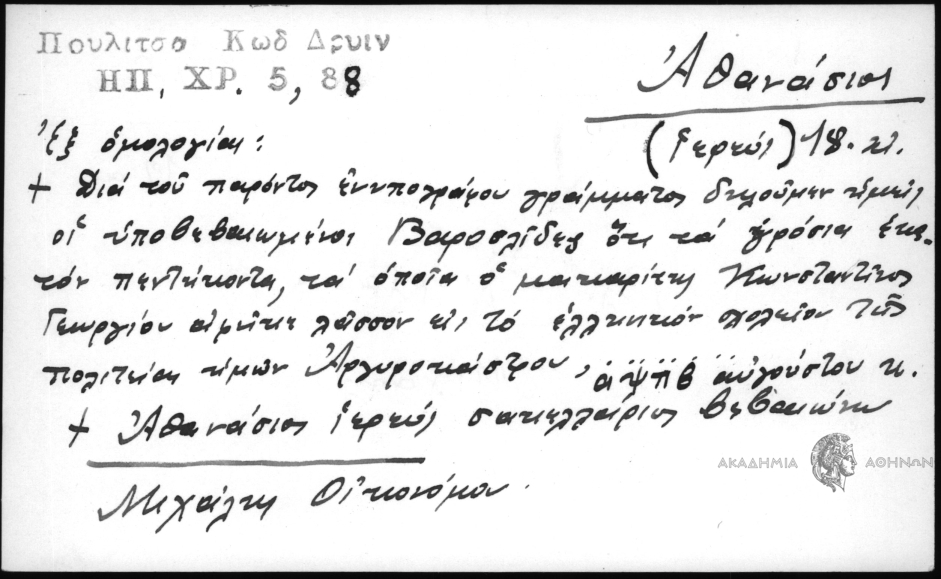 Πουλιτσα Κωδ Δρυιν
ΗΠ. ΧΡ. 5, 88
Ἀθανάσιος
(ἱερεύς) 18. αι.
Ἐξ ὁμολογίας:
+ Διά τοῦ παρόντος ἐνυπογράφου γράμματος δηλοῦμεν ἡμεῖς
οἱ ὑποβεβαιωμένοι Βαροσλίδες ὅτι τά γρόσια ἑκα-
τόν πεντήκοντα, τά ὁποῖα ὁ μακαρίτης Κωνσταντῖνος
Γεωργίου λάσσον εἰς τό ἑλληνικόν σχολεῖον τῆς
πολιτείας ἡμῶν Ἀργυροκάστρου, ͵αψπβ αὐγούστου κ.
+ Ἀθανάσιος ἱερεύς σακελλάριος βεβαιώνω
Μιχάλης Οἰκονόμου.
ΑΚΑΔΗΜΙΑ ΑΘΗΝΩΝ